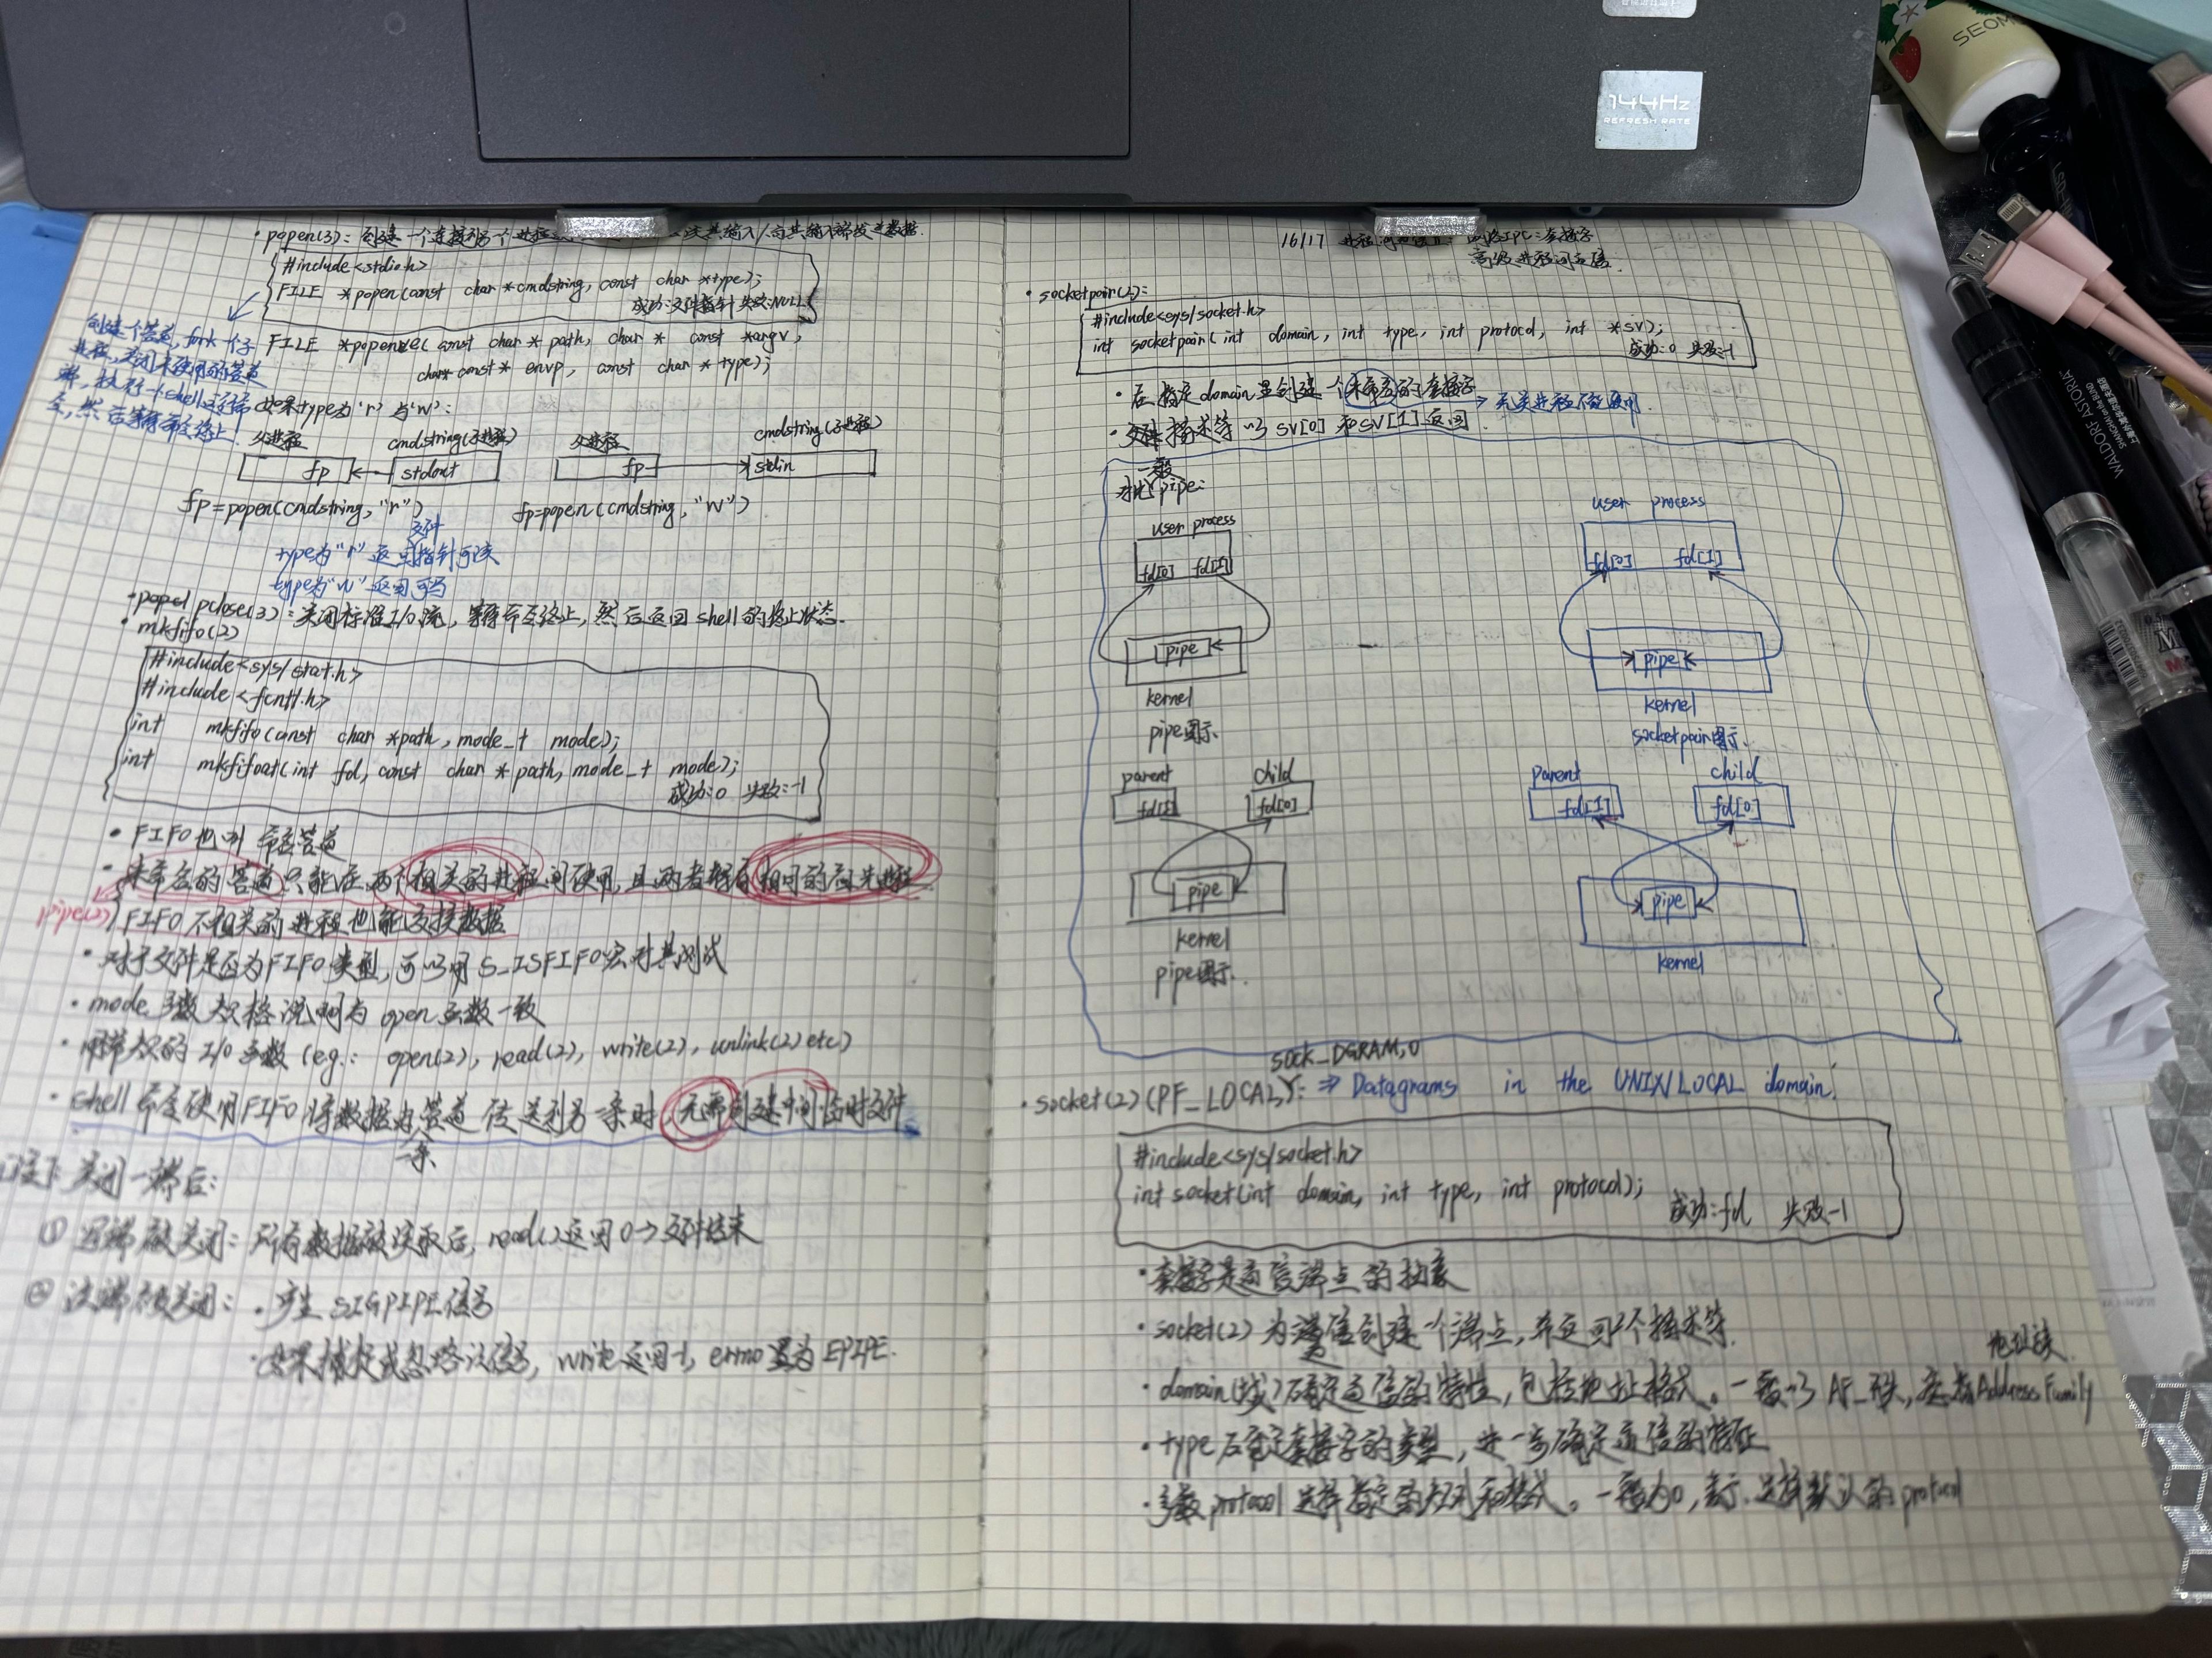 • popen(3): 创建一个连接到另一个进程 读其输入/向其输入端发送数据.
#include<stdio.h>
FILE *popen(const char *cmdstring, const char *type);
成功:文件指针 失败:NULL
创建一个管道, fork一个子
进程, 关闭未使用的管道
端, 执行一个shell运行命
令, 然后等待命令终止.
FILE *popenve(const char *path, char * const *argv,
char *const * envp, const char *type);
如果type为'r'与'w':
父进程 cmdstring(子进程) 父进程 cmdstring(子进程)
fp stdout fp stdin
fp=popen(cmdstring,"r") fp=popen(cmdstring,"w")
文件
type为"r" 返回指针可读
type为"w" 返回可写
• pclose(3): 关闭标准I/O流, 等待命令终止, 然后返回shell的终止状态.
• mkfifo(2)
#include<sys/stat.h>
#include<fcntl.h>
int mkfifo(const char *path, mode_t mode);
int mkfifoat(int fd, const char *path, mode_t mode);
成功:0 失败:-1
• FIFO也叫 命名管道
• 未命名的管道只能在两个相关的进程间使用, 且两者都有相同的祖先进程.
pipe(2) FIFO 不相关的进程也能交换数据
• 对于文件是否为FIFO类型, 可以用S_ISFIFO宏对其测试
• mode参数规格说明与 open函数一致
• 用常规的 I/O 函数 (eg.: open(2), read(2), write(2), unlink(2) etc)
• shell命令使用FIFO将数据由管道传送到另一条时, 无需创建中间临时文件
一条
关闭一端后:
① 写端被关闭: 所有数据被读取后, read()返回0→文件结束
② 读端被关闭: • 产生 SIGPIPE信号
• 如果捕捉或忽略该信号, write返回-1, errno置为EPIPE.
16/17 进程间通信II: 网络IPC:套接字
高级进程间通信.
• socketpair(2):
#include<sys/socket.h>
int socketpair(int domain, int type, int protocol, int *sv);
成功:0 失败:-1
• 在指定domain里创建一个未命名的套接字 → 无关进程不能使用.
• 文件描述符以 sv[0] 和 sv[1] 返回.
一般
对比 pipe:
user process user process
fd[0] fd[1] fd[0] fd[1]
pipe pipe
kernel kernel
pipe图示. socketpair图示.
parent child parent child
fd[1] fd[0] fd[1] fd[0]
pipe pipe
kernel kernel
pipe图示.
SOCK_DGRAM,0
• socket(2)(PF_LOCAL): ⇒ Datagrams in the UNIX/LOCAL domain.
#include<sys/socket.h>
int socket(int domain, int type, int protocol);
成功:fd 失败-1
• 套接字是通信端点的抽象
• socket(2) 为通信创建一个端点, 并返回1个描述符.
地址族.
• domain(域)确定通信的特性, 包括地址格式. 一般以 AF_开头, 意指Address Family
• type 后确定套接字的类型, 进一步确定通信的特征
• 参数 protocol 选择指定的规则和格式. 一般为0, 表示选择默认的protocol
144Hz
REFRESH RATE
SEOM
WALDORF ASTORIA
SHANGHAI ON THE BUND